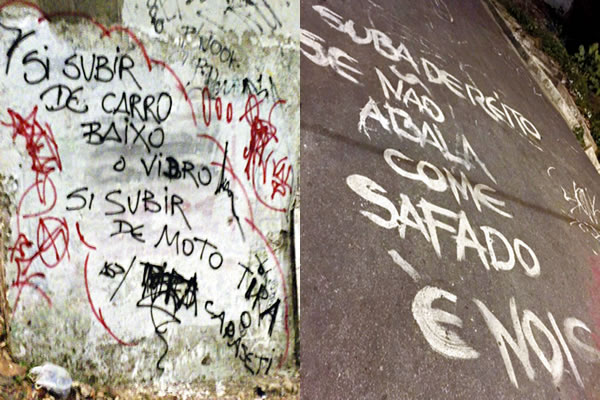 SI SUBIR
DE CARRO
BAIXO
O VIBRO
SI SUBIR
DE MOTO
TIRA
O
CAPASETI
SUBA DEREITO
SE NÃO
ABALA
COME
SAFADO
É NOIS